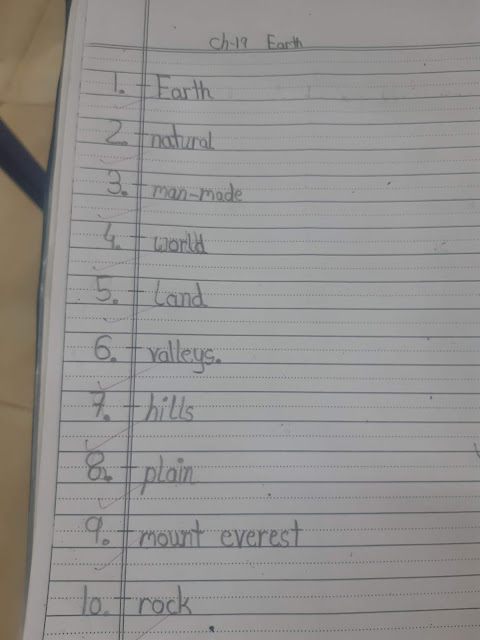 Ch-19 Earth
1. - Earth
2 - natural
3. - man-made
4. - world
5. - Land
6. - valleys.
7. - hills
8. - plain
9. - mount everest
10. - rock